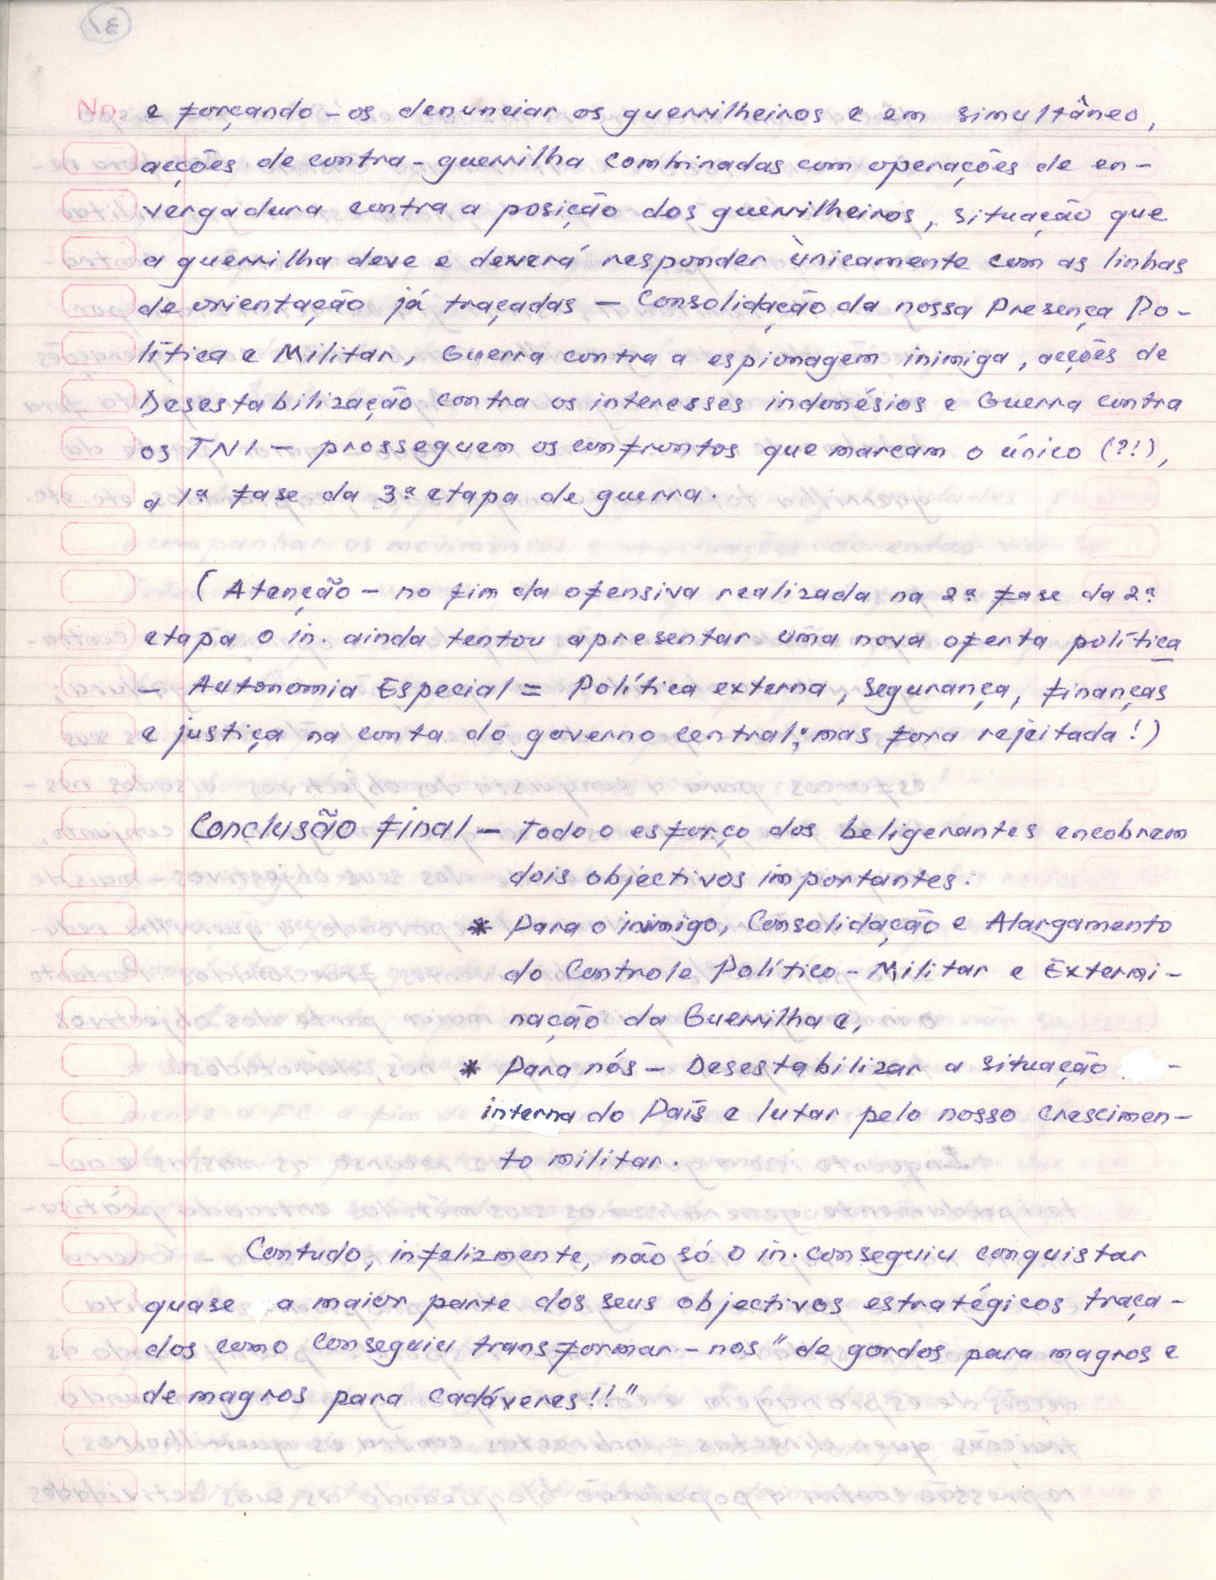 31
No. e forçando-os denunciar os guerrilheiros e em simultâneo,
acções de contra-guerrilha combinadas com operações de en-
vergadura contra a posição dos guerrilheiros, situação que
a guerrilha deve e deverá responder ùnicamente com as linhas
de orientação já traçadas — Consolidação da nossa Presença Po-
lítica e Militar, Guerra contra a espionagem inimiga, acções de
Desestabilização contra os interesses indonésios e Guerra contra
os TNI — prosseguem os confrontos que marcam o único (?!),
a 1ª fase da 3ª etapa de guerra.
(Atenção — no fim da ofensiva realizada na 2ª fase da 2ª
etapa o in. ainda tentou apresentar uma nova oferta política
— Autonomia Especial = Política externa, segurança, finanças
e justiça na conta do governo central; mas fora rejeitada!)
Conclusão final — Todo o esforço dos beligerantes encobrem
dois objectivos importantes:
* Para o inimigo, Consolidação e Alargamento
do Controle Político-Militar e Extermi-
nação da Guerrilha e,
* Para nós — Desestabilizar a situação -
interna do País e lutar pelo nosso crescimen-
to militar.
Contudo, infelizmente, não só o in. conseguiu conquistar
quase a maior parte dos seus objectivos estratégicos traça-
dos como conseguiu transformar-nos "de gordos para magros e
de magros para cadáveres!!"